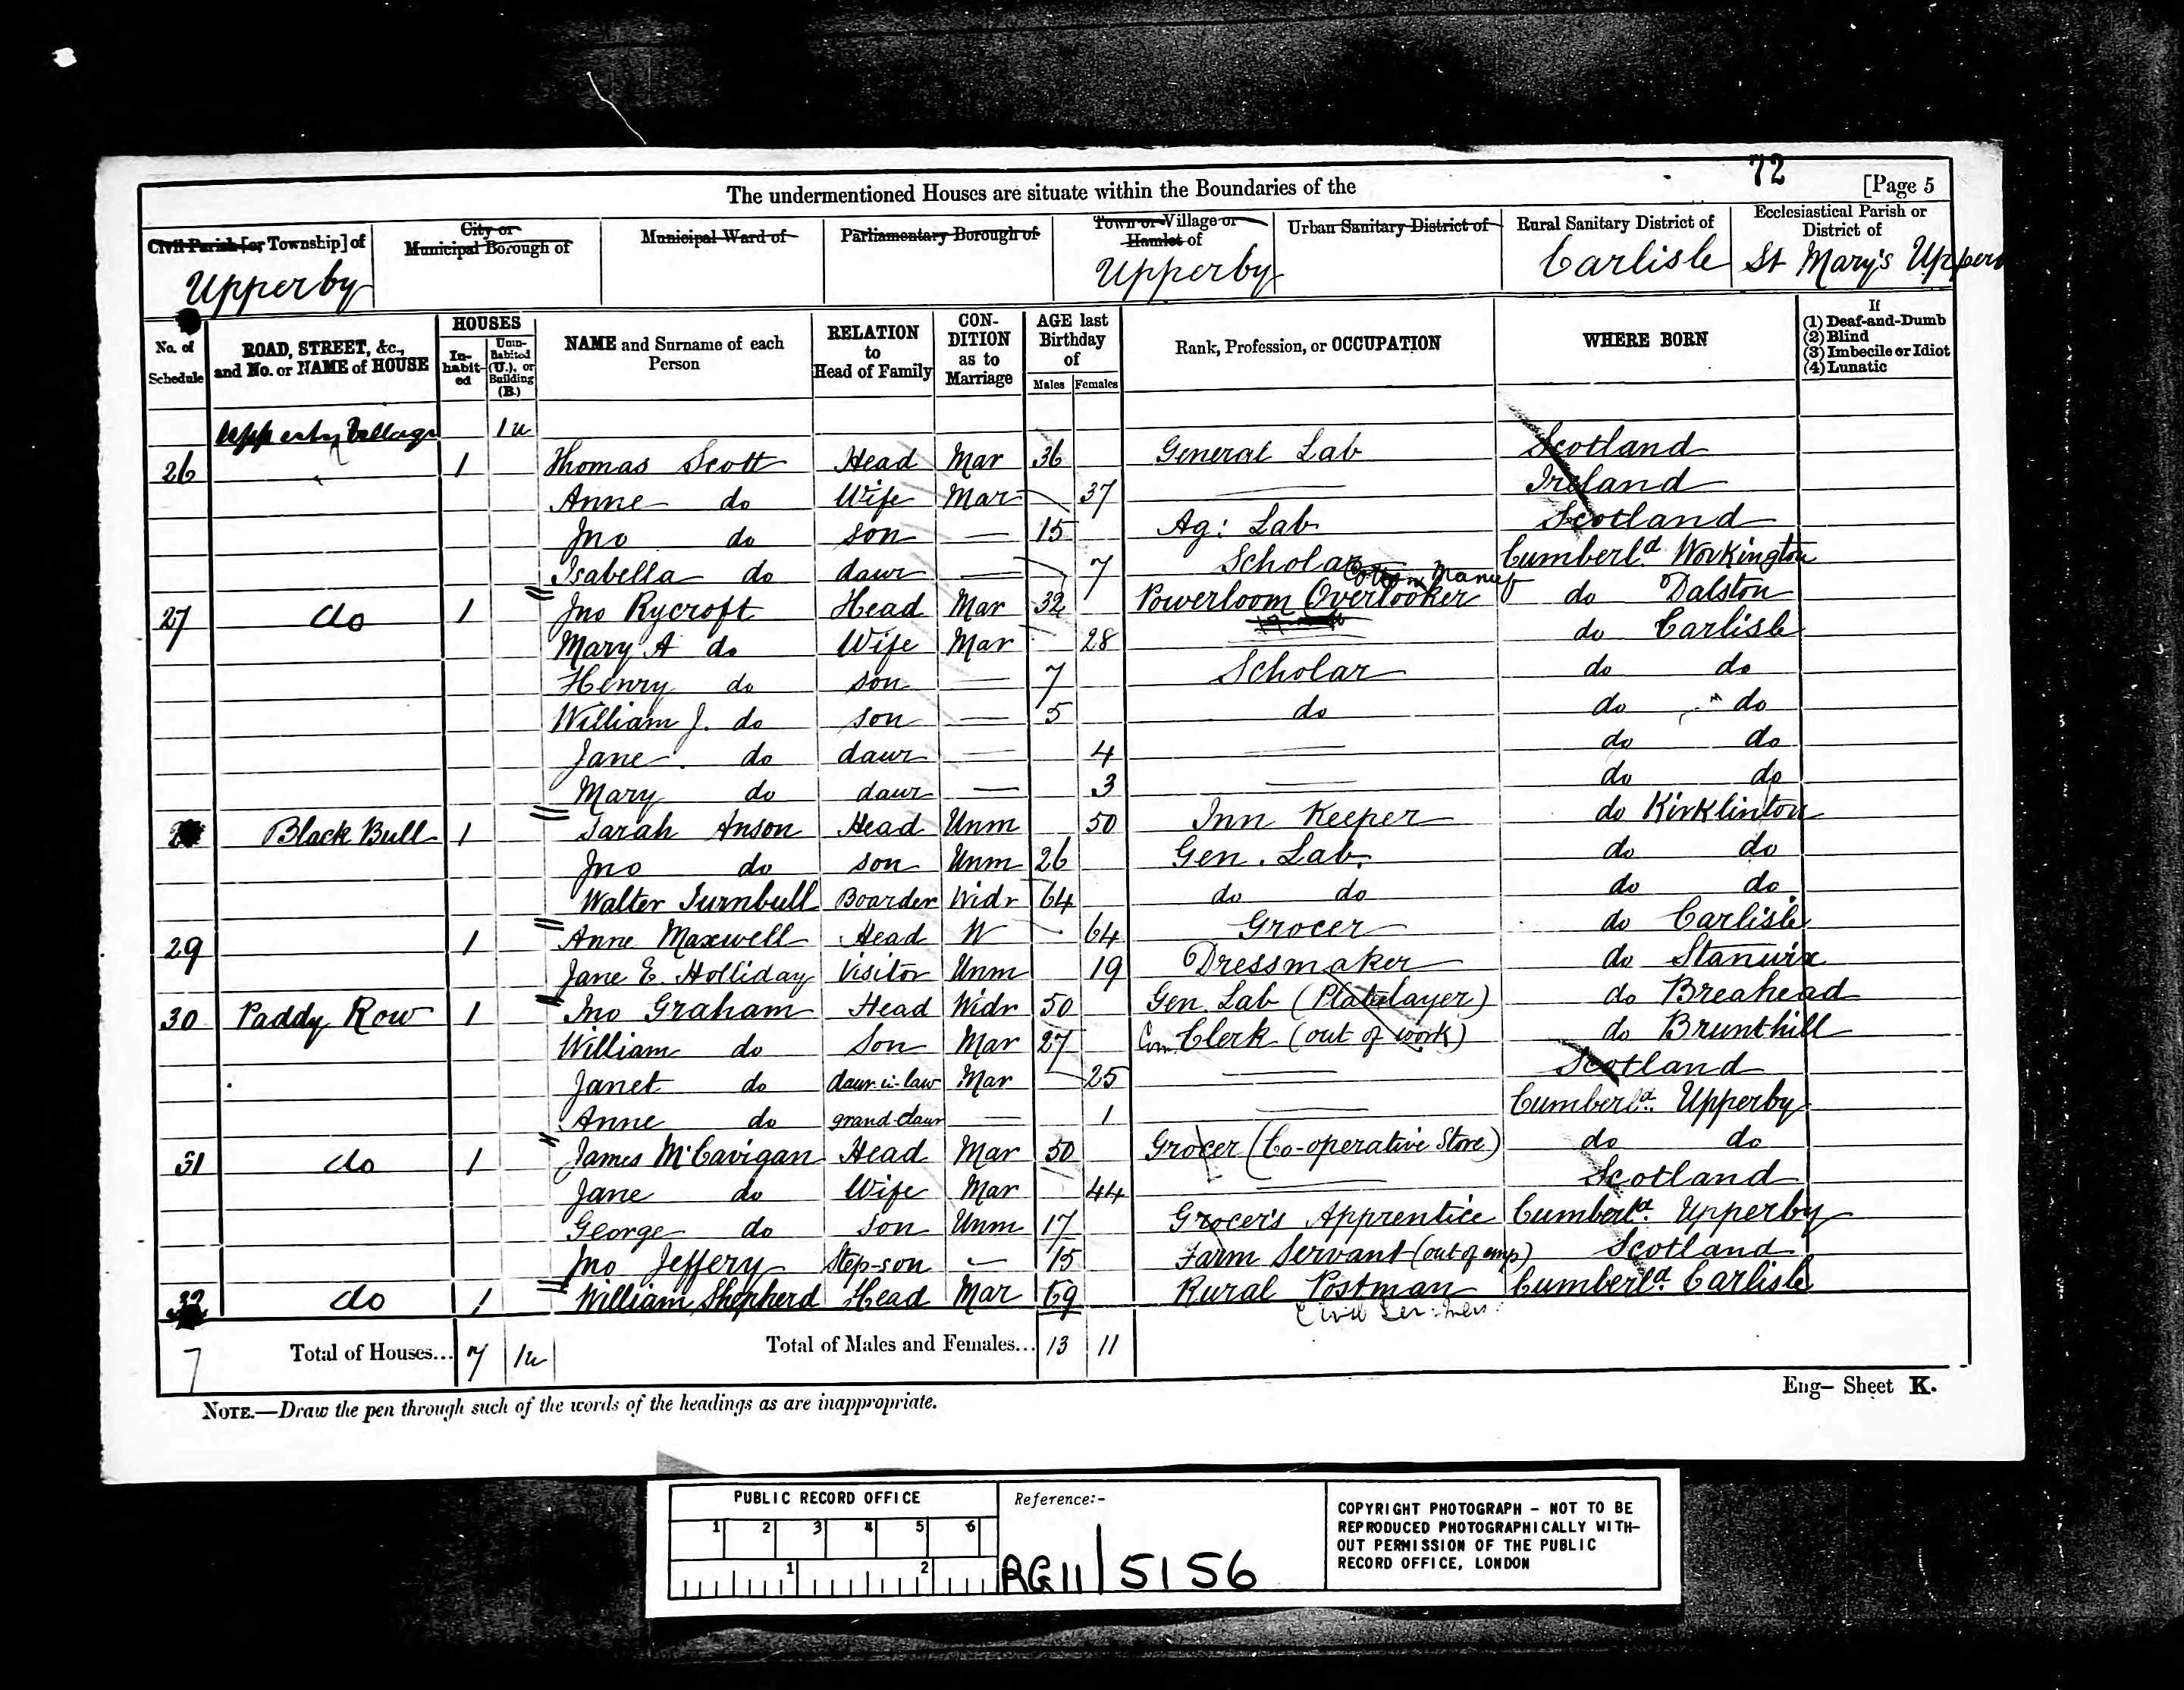 72
The undermentioned Houses are situate within the Boundaries of the [Page 5
Civil Parish [or Township] of City or Municipal Borough of Municipal Ward of Parliamentary Borough of Town or Village or Hamlet of Urban Sanitary District of Rural Sanitary District of Ecclesiastical Parish or District of
Upperby Upperby Carlisle St Mary's Upper
No. of Schedule ROAD, STREET, &c., and No. or NAME of HOUSE HOUSES In-habit-ed Unin-habited (U.), or Building (B.) NAME and Surname of each Person RELATION to Head of Family CON-DITION as to Marriage AGE last Birthday of Males Females Rank, Profession, or OCCUPATION WHERE BORN If (1) Deaf-and-Dumb (2) Blind (3) Imbecile or Idiot (4) Lunatic
Upperby Village 1u
26 1 Thomas Scott Head Mar 36 General Lab Scotland
Anne do Wife Mar 37 — Ireland
Jno do son — 15 Ag: Lab Scotland
Isabella do daur — 7 Scholar Cumberld Workington
27 do 1 Jno Rycroft Head Mar 32 Powerloom Overlooker Cotton Manuf do Dalston
Mary A do Wife Mar 28 — do Carlisle
Henry do son — 7 Scholar do do
William J. do son — 5 do do do
Jane do daur — 4 — do do
Mary do daur — 3 — do do
Black Bull 1 Sarah Anson Head Unm 50 Inn Keeper do Kirklinton
Jno do son Unm 26 Gen. Lab. do do
Walter Turnbull Boarder Widr 64 do do do do
29 1 Anne Maxwell Head W 64 Grocer do Carlisle
Jane E. Holliday Visitor Unm 19 Dressmaker do Stanwix
30 Paddy Row 1 Jno Graham Head Widr 50 Gen. Lab (Platelayer) do Breahead
William do Son Mar 27 Com. Clerk (out of work) do Brunthill
Janet do daur-in-law Mar 25 — Scotland
Anne do grand-daur — 1 — Cumberld. Upperby
31 do 1 James McCavigan Head Mar 50 Grocer (Co-operative Store) do do
Jane do Wife Mar 44 — Scotland
George do son Unm 17 Grocer's Apprentice Cumberld. Upperby
Jno Jeffery Step-son — 15 Farm Servant (out of emp) Scotland
32 do 1 William Shepherd Head Mar 69 Rural Postman Cumberld. Carlisle
Civil Ser:
7 Total of Houses... 7 1u Total of Males and Females... 13 11
Eng— Sheet K.
NOTE.—Draw the pen through such of the words of the headings as are inappropriate.
PUBLIC RECORD OFFICE
1 2 3 4 5 6
1 2
Reference:-
RG11/5156
COPYRIGHT PHOTOGRAPH - NOT TO BE
REPRODUCED PHOTOGRAPHICALLY WITH-
OUT PERMISSION OF THE PUBLIC
RECORD OFFICE, LONDON